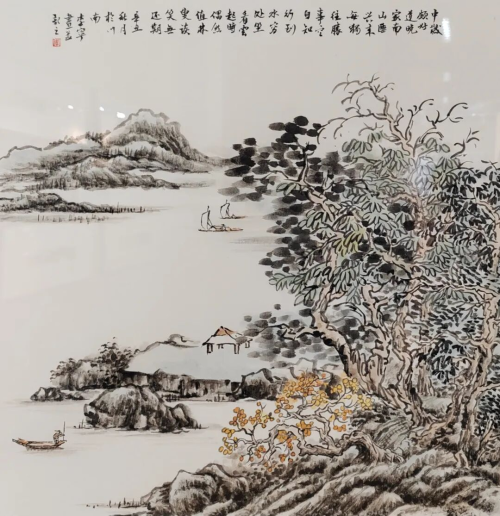 中歲
頗好
道晚
家南
山陲
興來
每獨
往勝
事空
自知
行到
水窮
處坐
看雲
起時
偶然
值林
叟談
笑無
還期
秋月
於
南